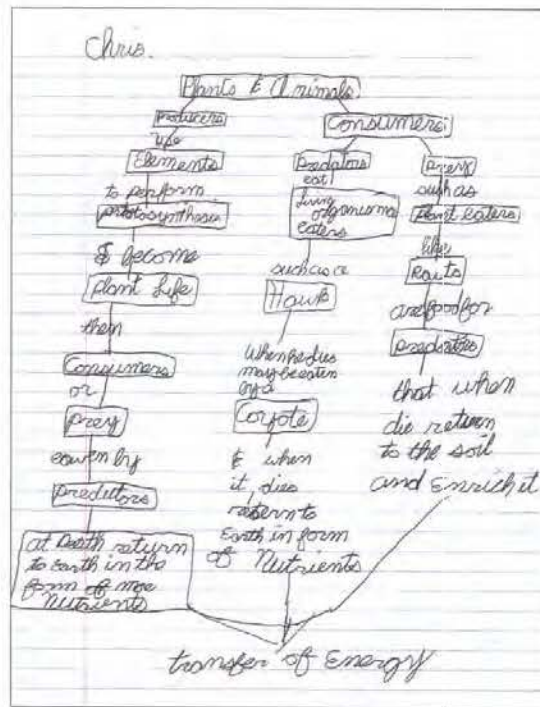 Chris.
Plants & Animals
Producers
use
Elements
to perform
photosynthesis
& become
Plant Life
then
Consumers
or
Prey
eaven by
Predittors
at Death return
to Earth in the
form of moe
Nutrients
Consumers
Predators
eat
living
organisms
eaters
such as a
Hawk
When he dies
may be eaten
by a
Coyote
& when
it, dies
return to
Earth in form
of Nutrients
prey
such as
Plant eaters
like
are food for
that when
die return
to the soil
and Enrich it
transfer of Energy